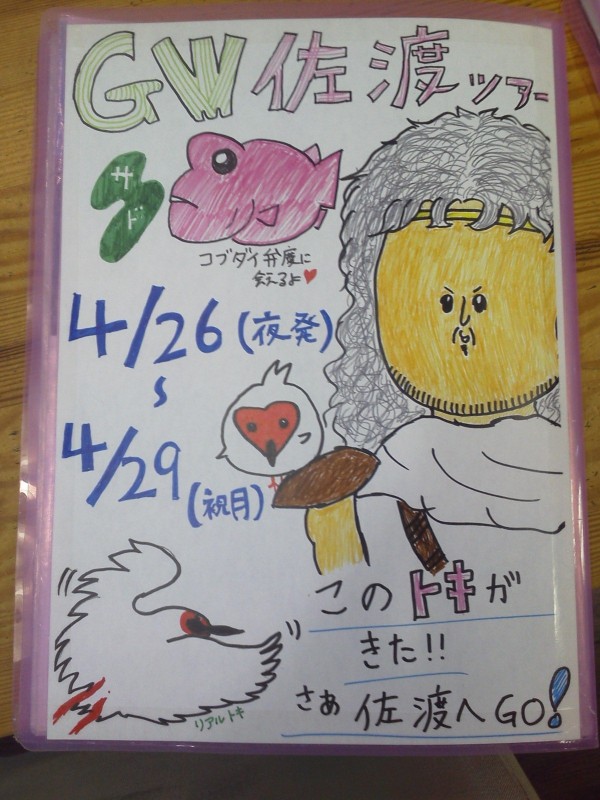 GW佐渡ツアー
サド
コブダイ弁慶に
会えるよ♥
4/26(夜発)
～
4/29(祝月)
このトキが
きた!!
さぁ佐渡へGO!
リアルトキ